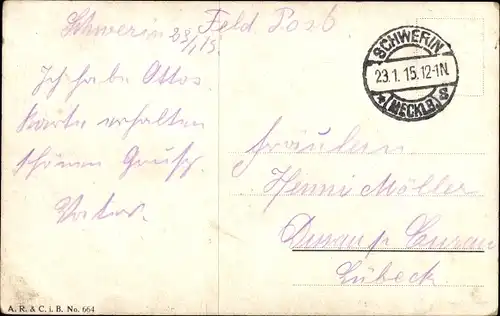 Schwerin 23/1 15. Feld Post
SCHWERIN
23.1.15.12-1N.
* (MECKLB) 8
Ich habe Ottos
Karte erhalten
schönen Gruß
Vater.
Fräulein
Henni Möller
p
Lübeck
A. R. & C. i. B. No. 664